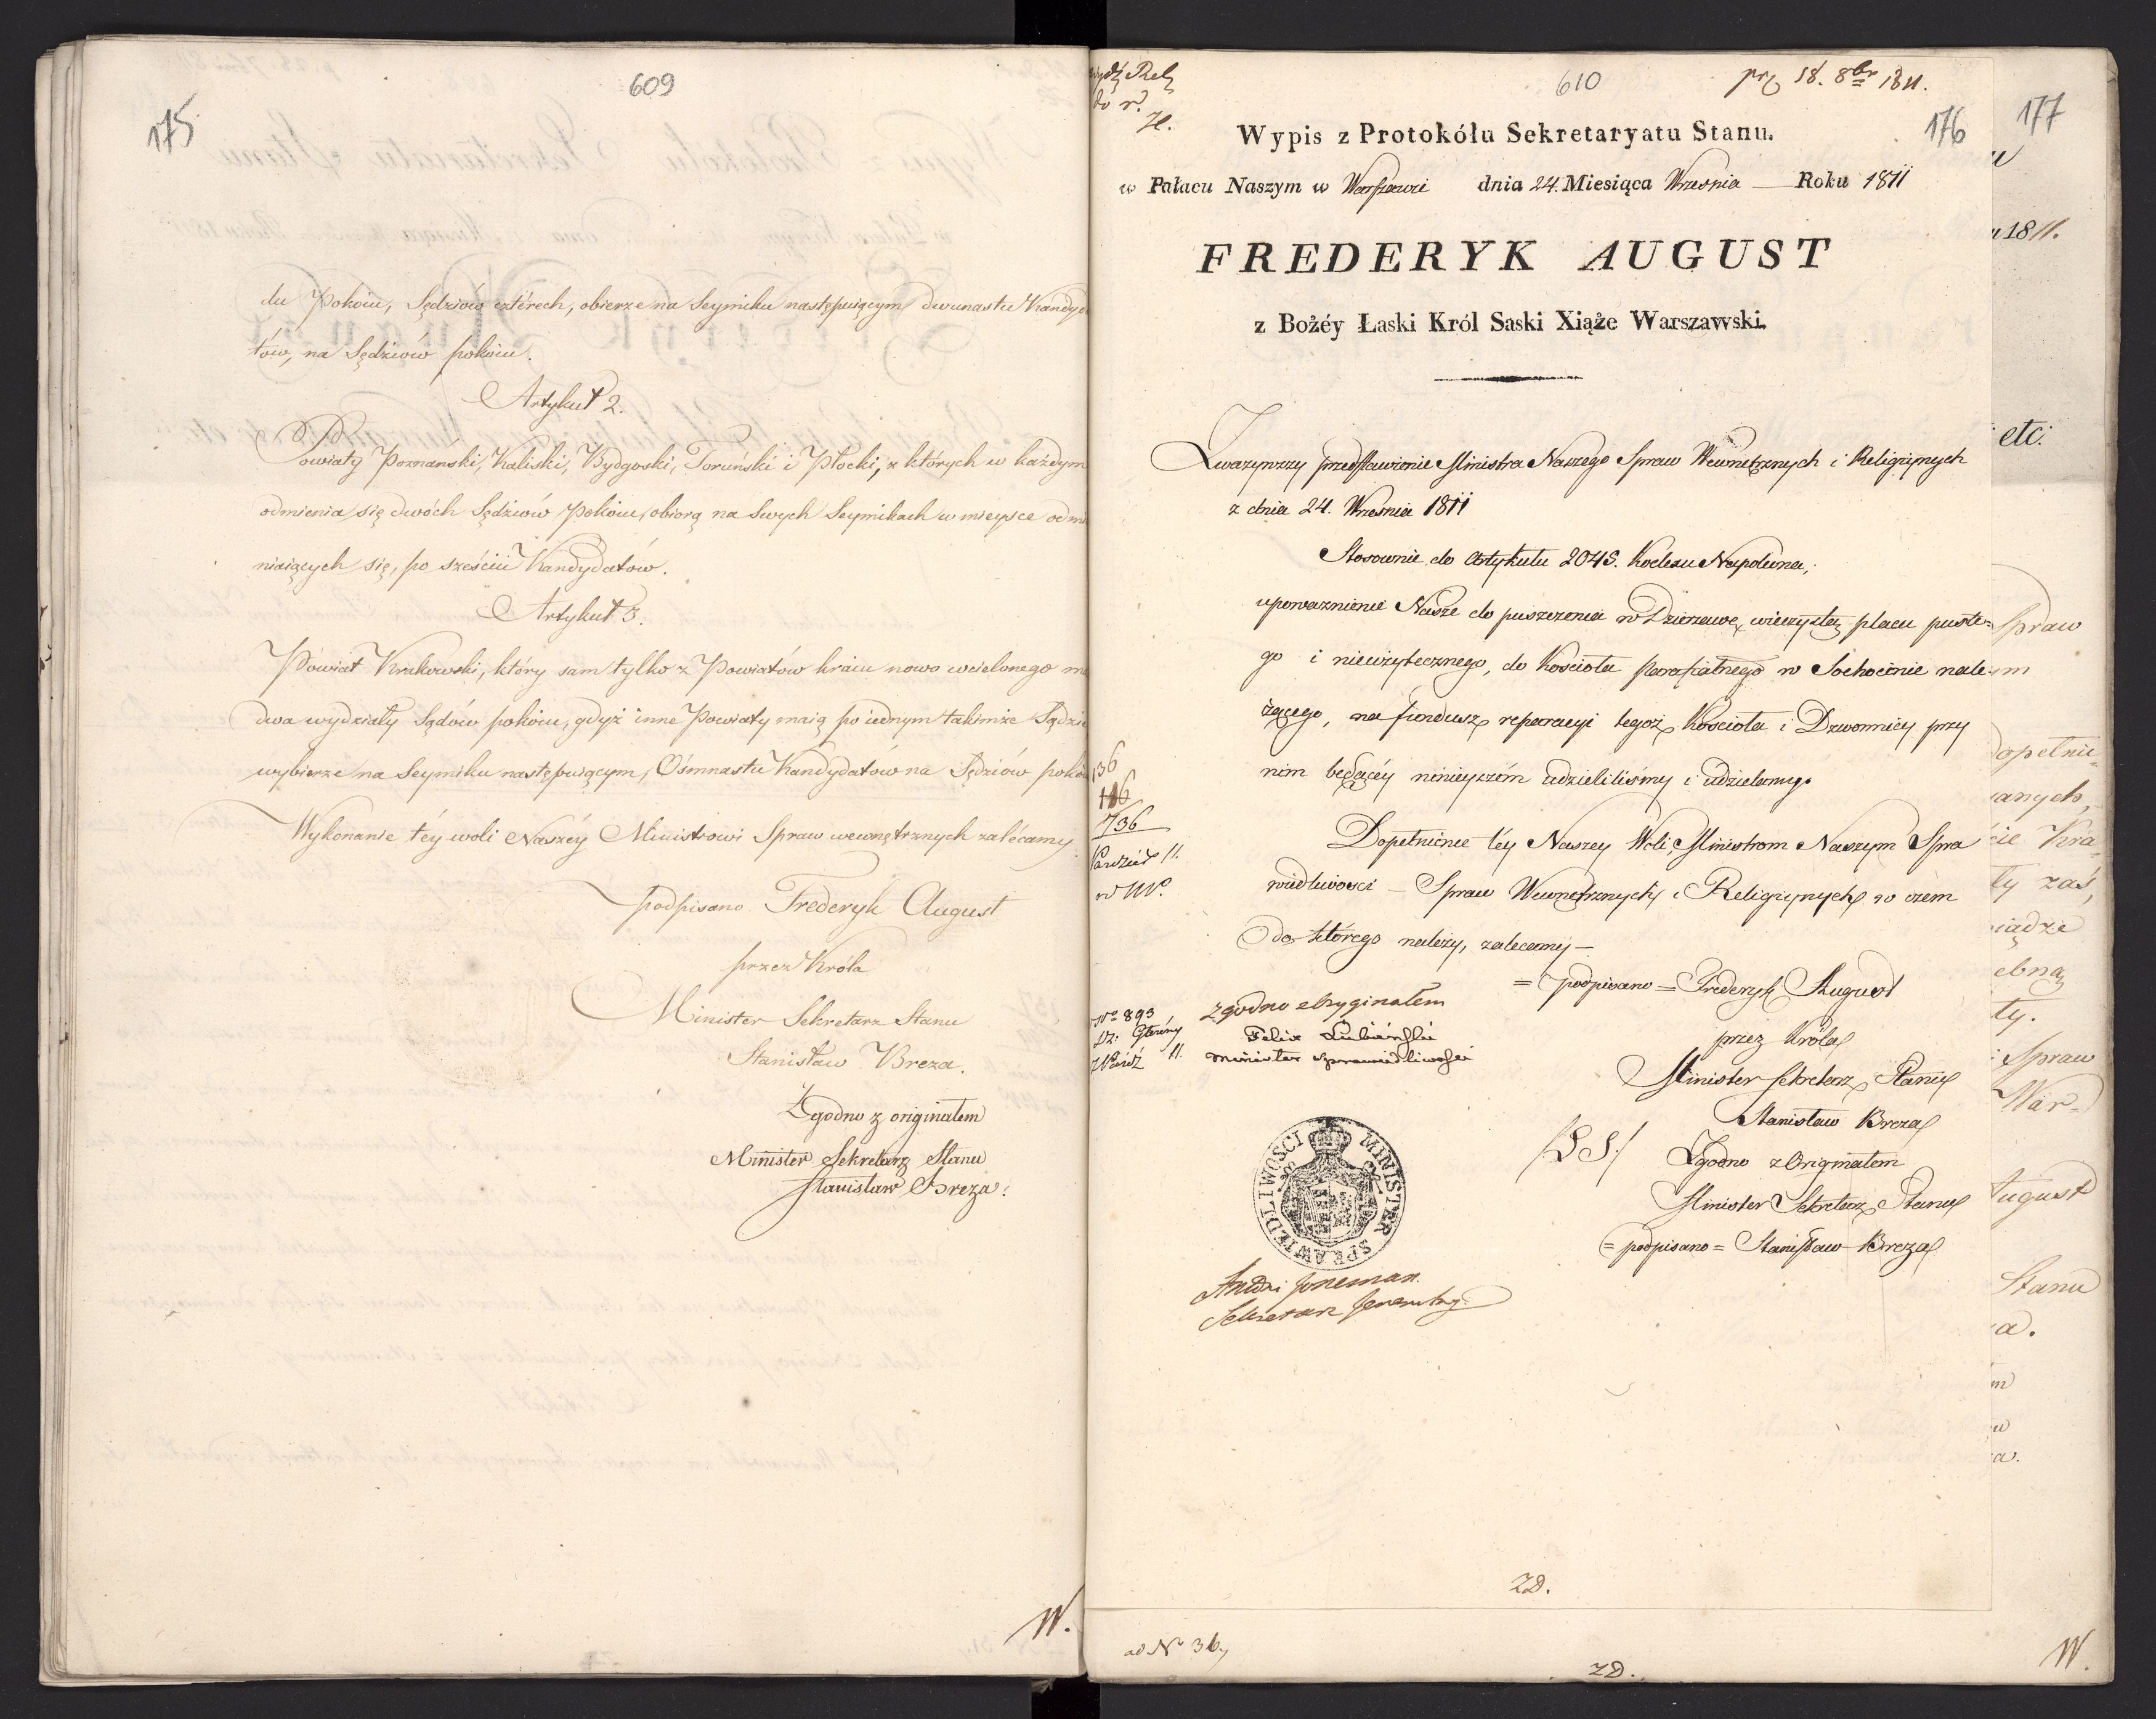 609
175
du Pokoiu, Sędziów cztérech, obierze na Seymiku następuiącym dwunastu Kandyda
tów, na Sędziów pokoiu.
Artykuł 2.
Powiaty Poznański, Kaliski, Bydgoski, Toruński i Płocki, z których w każdym
odmienia się dwóch Sędziów Pokoiu, obiorą na Swych Seymikach w mieysce odmi
niaiących się, po sześciu Kandydatów.
Artykuł 3.
Powiat Krakowski, który sam tylko z Powiatów kraiu nowo wcielonego ma
dwa wydziały Sądów pokoiu, gdyż inne Powiaty maią po iednym takimże Sądzie
wybierze na Seymiku następuiącym, Ośmnastu Kandydatów na Sędziów pokoiu
Wykonanie téy woli Naszéy Ministrowi Spraw wewnętrznych zalécamy.
podpisano Frederyk August
przez Króla
Minister Sekretarz Stanu
Stanisław Breza.
Zgodno z originałem
Minister Sekretarz Stanu
Stanisław Breza.
W.
610
18. 8br 1811.
176
Wypis z Protokółu Sekretaryatu Stanu.
w Pałacu Naszym w Warszawie dnia 24. Miesiąca Września Roku 1811
FREDERYK AUGUST
z Bożéy Łaski Król Saski Xiąże Warszawski.
Zważywszy przedstawienie Ministra Naszego Spraw Wewnętrznych i Religiynych
z dnia 24. Września 1811
Stosownie do Artykułu 2045. Kodexu Napoleona,
upoważnienie Nasze do puszczenia w Dzierzawę wieczystą placu puste-
go i nieużytecznego, do Kościoła Parafialnego w Sochocinie nale-
żącego, na fundusz reparacyi tegoż Kościoła i Dzwonnicy przy
nim będącéy ninieyszém udzieliliśmy i udzielamy.
Dopełnienie téy Naszey Woli Ministrom Naszym Spra
wiedliwości – Spraw Wewnętrznych i Religiynych w czém
do którego należy, zalecamy –
= podpisano = Frederyk August
przez Króla
Minister Sekretarz Stanu
Stanisław Breza
/LS/ Zgodno z Originałem
Minister Sekretarz Stanu
= podpisano = Stanisław Breza
136
736
w W.
No 893
Dz: Główny
11.
Zgodno z Oryginałem
Felix Lubieński
Minister Sprawiedliwości
MINISTER SPRAWIEDLIWOSCI
Sekretarz Jeneralny
ZD.
ad No 36
ZD.
177
1811.
etc:
Spraw
m
dopełnie=
anych,
cie Kra=
ty zaś,
iądze
ebną
ty.
i Spraw
War=
August
Stanu
a.
W.